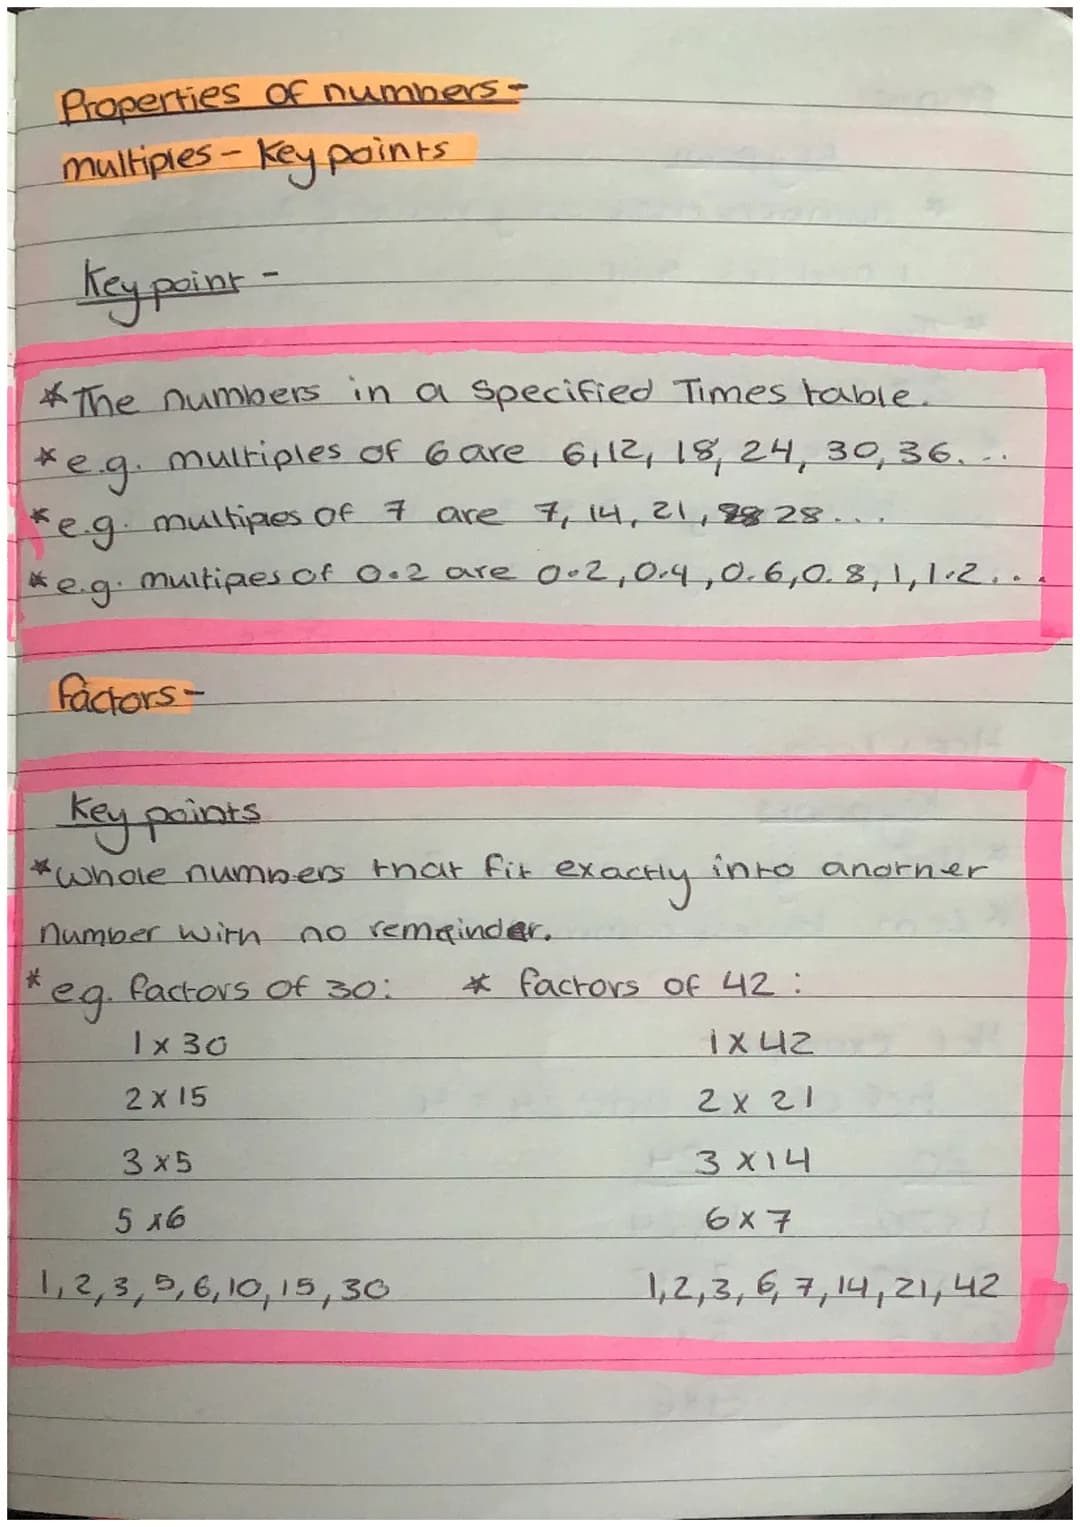 Properties of numbers -
multiples - Key points
Key point -
* The numbers in a specified Times table.
* e.g. multiples of 6 are 6, 12, 18, 24, 30, 36...
* e.g. multipes of 7 are 7, 14, 21, 28...
* e.g. multipes of 0.2 are 0.2, 0.4, 0.6, 0.8, 1, 1.2...
factors -
Key points
* Whole numbers that fit exactly into another
number with no remainder.
* eg. factors of 30: * factors of 42:
1 x 30 1 x 42
2 x 15 2 x 21
3 x 5 3 x 14
5 x 6 6 x 7
1, 2, 3, 5, 6, 10, 15, 30 1, 2, 3, 6, 7, 14, 21, 42